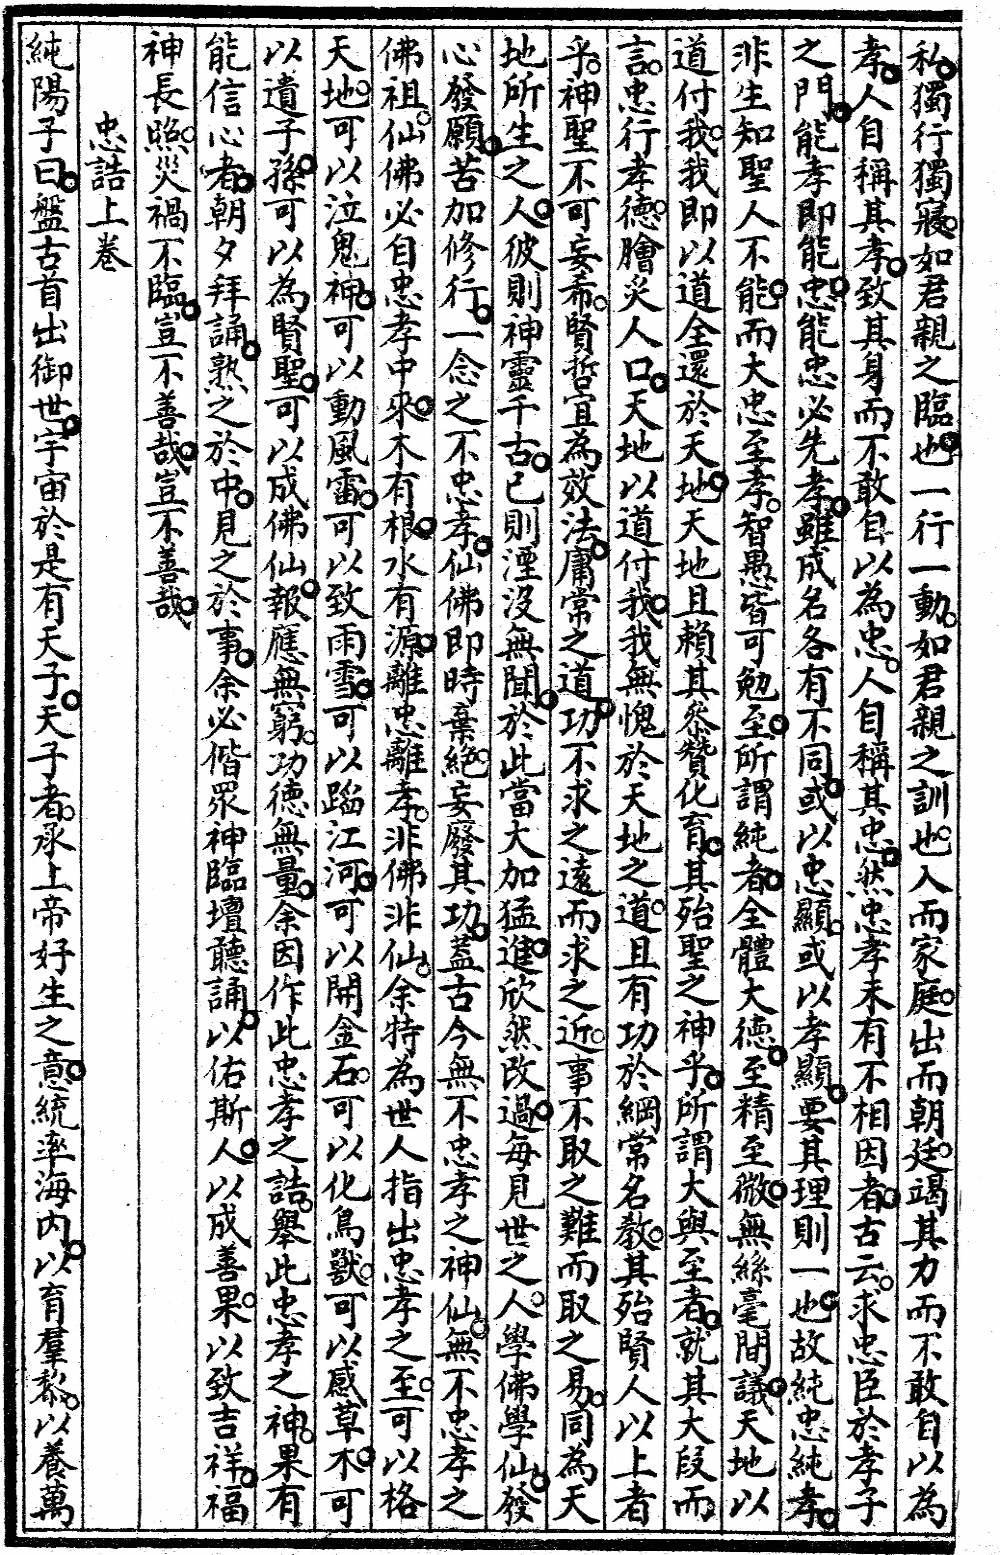 私獨行獨寢如君親之臨也一行一動如君親之訓也入而家庭出而朝廷竭其力而不敢自以為
孝人自稱其孝致其身而不敢自以為忠人自稱其忠然忠孝未有不相因者古云求忠臣於孝子
之門能孝即能忠能忠必先孝雖成名各有不同或以忠顯或以孝顯要其理則一也故純忠純孝
非生知聖人不能而大忠至孝智愚皆可勉至所謂純者全體大德至精至微無絲毫間議天地以
道付我我即以道全還於天地天地且賴其叅贊化育其殆聖之神乎所謂大與至者就其大段而
言忠行孝德膾炙人口天地以道付我我無愧於天地之道且有功於綱常名教其殆賢人以上者
乎神聖不可妄希賢哲宜為效法庸常之道功不求之遠而求之近事不取之難而取之易同為天
地所生之人彼則神靈千古已則湮沒無聞於此當大加猛進欣然改過每見世之人學佛學仙發
心發願苦加修行一念之不忠孝仙佛即時棄絕妄廢其功蓋古今無不忠孝之神仙無不忠孝之
佛祖仙佛必自忠孝中來木有根水有源離忠離孝非佛非仙余特為世人指出忠孝之至可以格
天地可以泣鬼神可以動風雷可以致雨雪可以蹈江河可以開金石可以化鳥獸可以感草木可
以遺子孫可以為賢聖可以成佛仙報應無窮功德無量余因作此忠孝之誥舉此忠孝之神果有
能信心者朝夕拜誦熟之於中見之於事余必偕眾神臨壇聽誦以佑斯人以成善果以致吉祥福
神長照災禍不臨豈不善哉豈不善哉
忠誥上卷
純陽子曰盤古首出御世宇宙於是有天子天子者承上帝好生之意統率海内以育羣黎以養萬